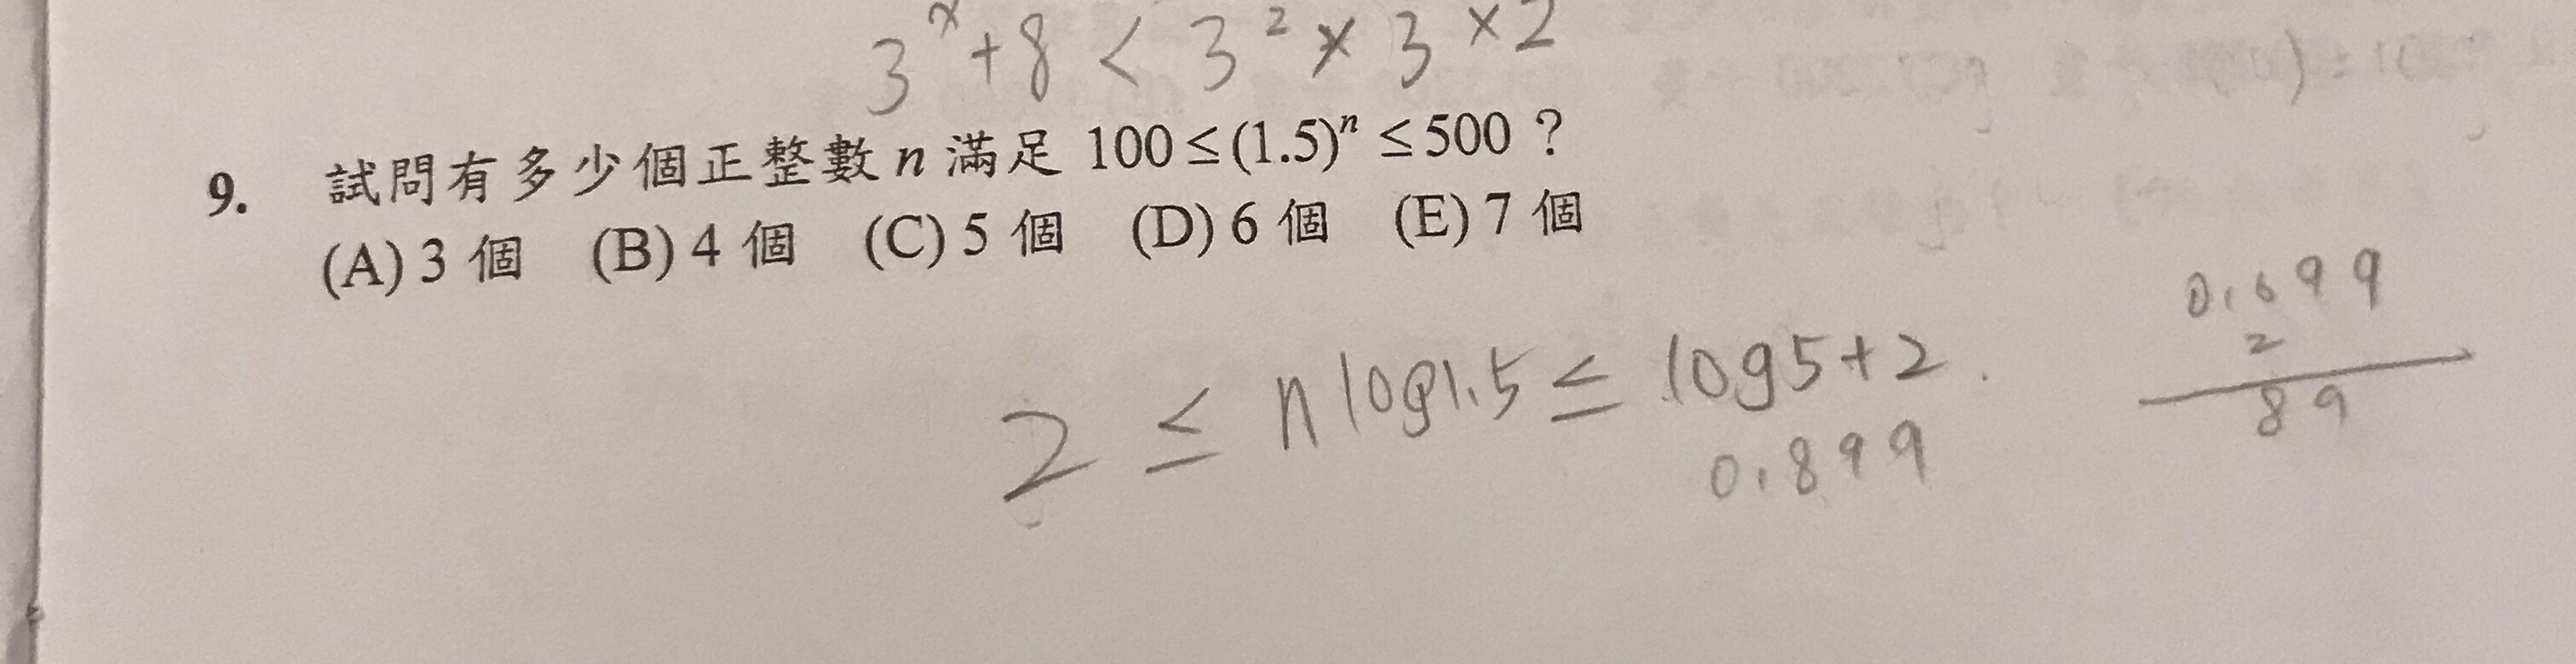 3^x+8 < 3^2 × 3 × 2
9. 試問有多少個正整數 n 滿足 100≤(1.5)^n ≤500？
(A) 3 個 (B) 4 個 (C) 5 個 (D) 6 個 (E) 7 個
2 ≤ n log1.5 ≤ log5+2
0.899
0.699
2
89